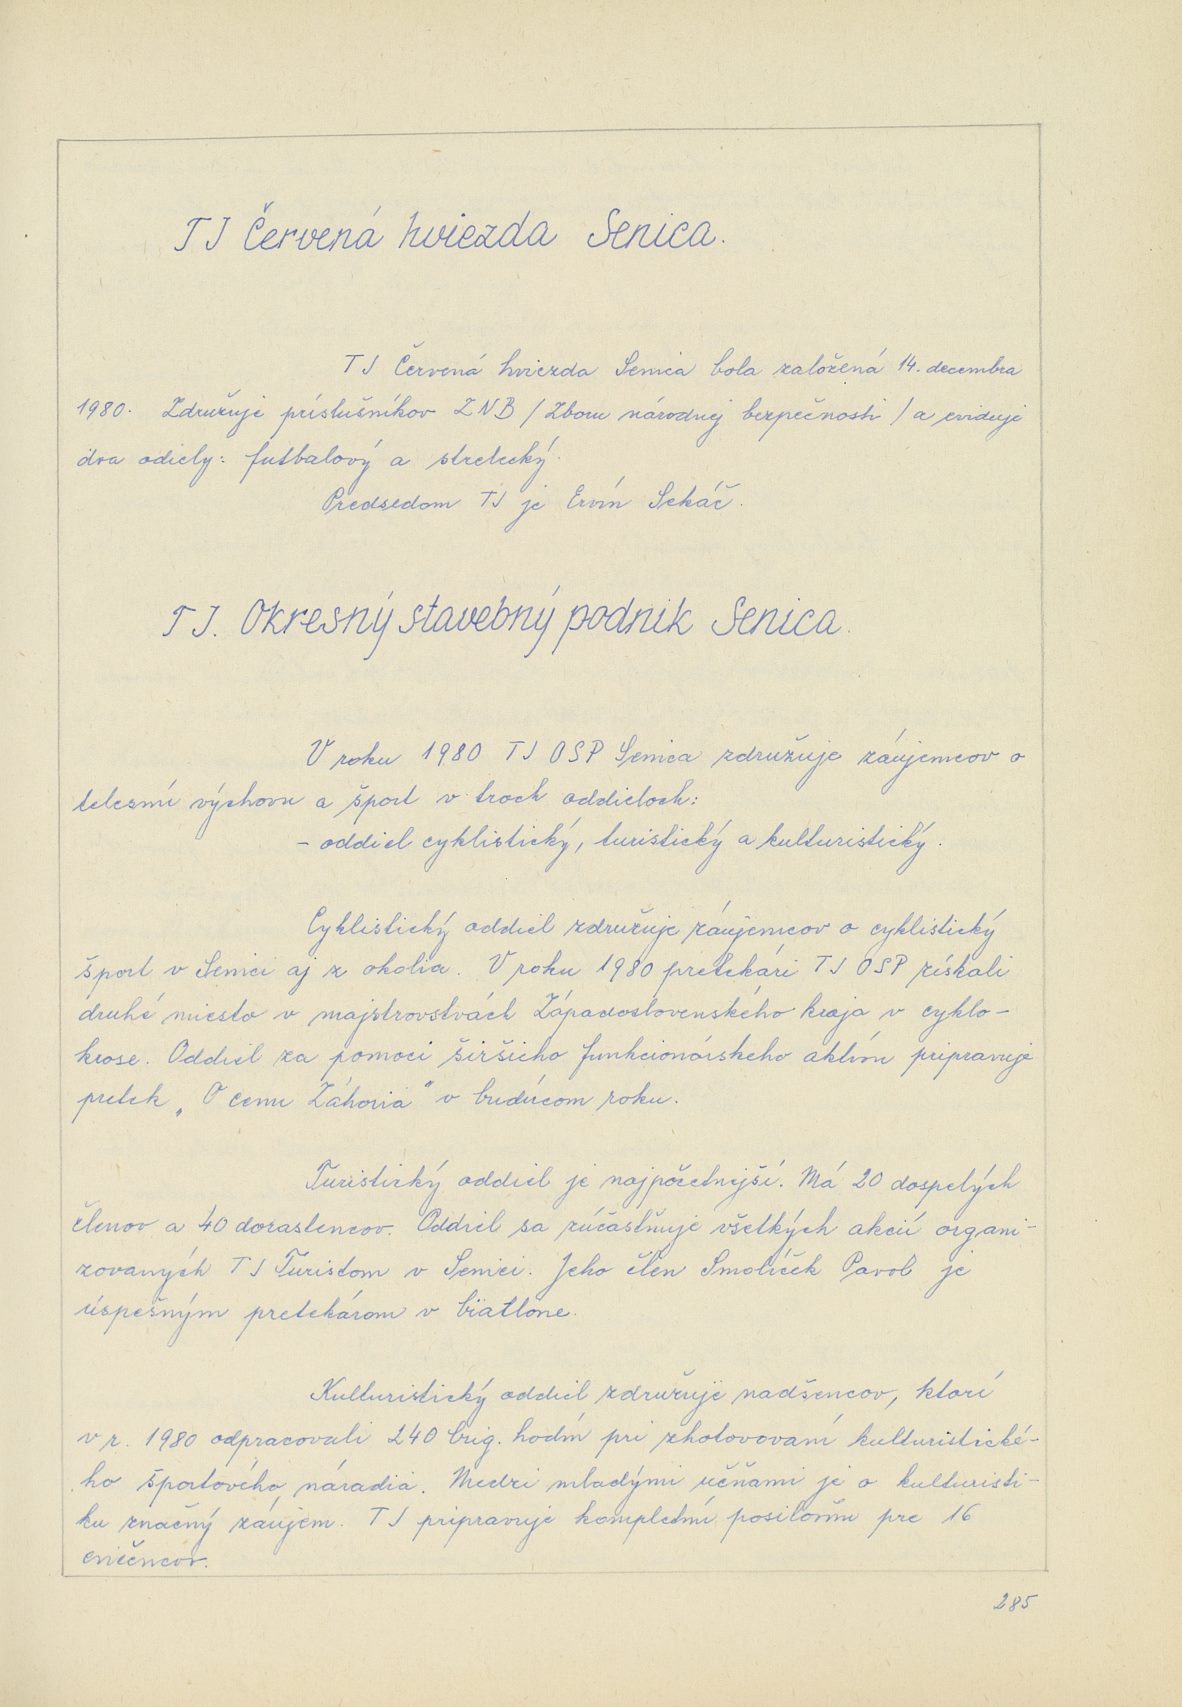 TJ Červená hviezda Senica.
TJ Červená hviezda Senica bola založená 14. decembra
1980. Združuje príslušníkov ZNB / Zboru národnej bezpečnosti / a eviduje
dva odiely: futbalový a strelecký.
Predsedom TJ je Ervín Sekáč.
TJ. Okresný stavebný podnik Senica.
V roku 1980 TJ OSP Senica združuje záujemcov o
telesnú výchovu a šport v troch oddieloch:
- oddiel cyklistický, turistický a kulturistický.
Cyklistický oddiel združuje záujemcov o cyklistický
šport v Senici aj z okolia. V roku 1980 pretekári TJ OSP získali
druhé miesto v majstrovstvách Západoslovenského kraja v cyklo-
krose. Oddiel za pomoci širšieho funkcionárskeho aktívu pripravuje
pretek „O cenu Záhoria" v budúcom roku.
Turistický oddiel je najpočetnejší. Má 20 dospelých
členov a 40 dorastencov. Oddiel sa zúčastňuje všetkých akcií organi-
zovaných TJ Turistom v Senici. Jeho člen Smolíček Pavol je
úspešným pretekárom v biatlone.
Kulturistický oddiel združuje nadšencov, ktorí
v r. 1980 odpracovali 240 brig. hodín pri zhotovovaní kulturistické-
ho športového náradia. Medzi mladými učňami je o kulturisti-
ku značný záujem. TJ pripravuje kompletnú posilovňu pre 16
cvičencov.
285